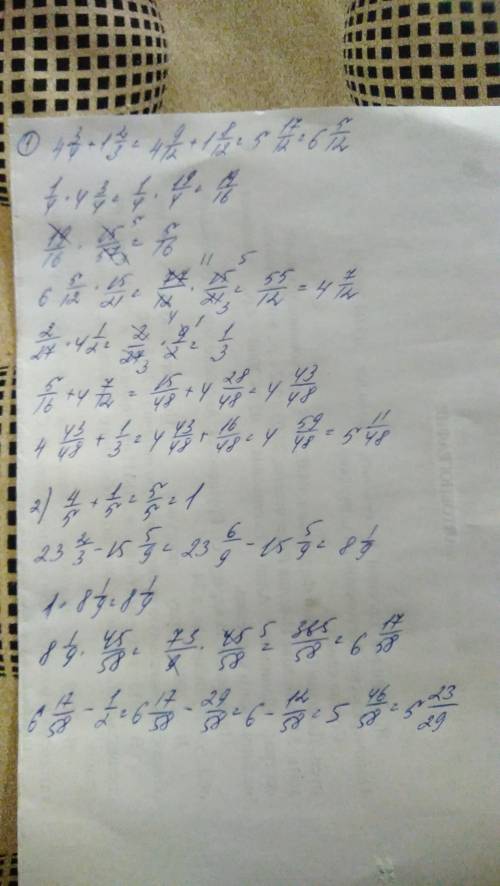 1) 4 3/4 + 1 2/3 = 4 9/12 + 1 8/12 = 5 17/12 = 6 5/12
1/4 · 4 3/4 = 1/4 · 19/4 = 19/16
19/16 · 15/57 3 5 = 5/16
6 5/12 · 15/21 = 77/12 11 · 15/21 3 5 = 55/12 = 4 7/12
2/27 · 4 1/2 = 2/27 3 1 · 9/2 1 = 1/3
5/16 + 4 7/12 = 15/48 + 4 28/48 = 4 43/48
4 43/48 + 1/3 = 4 43/48 + 16/48 = 4 59/48 = 5 11/48
2) 4/5 + 1/5 = 5/5 = 1
23 2/3 - 15 5/9 = 23 6/9 - 15 5/9 = 8 1/9
1 · 8 1/9 = 8 1/9
8 1/9 · 45/58 = 73/9 · 45/58 5 = 365/58 = 6 17/58
6 17/58 - 1/2 = 6 17/58 - 29/58 = 6 - 12/58 = 5 46/58 = 5 23/29